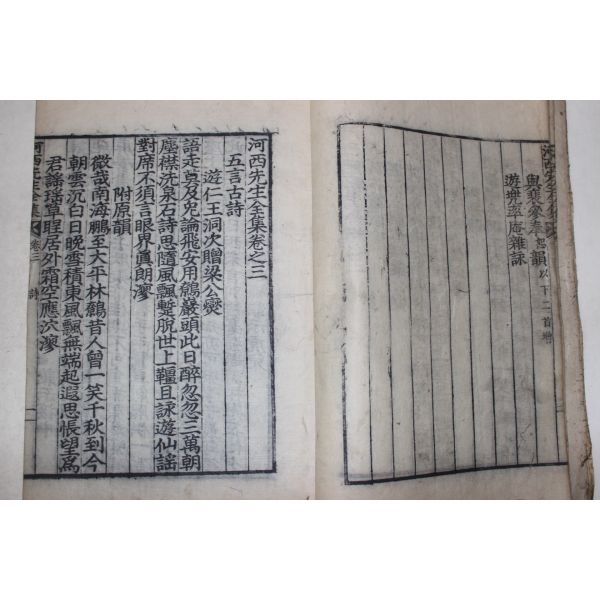 與裴參奉韻以下二首增
遊兜率庵雜詠
河西先生全集卷之三
五言古詩
遊仁王洞次贈梁公燮
語走莫及兕論飛安用鷃巖頭此日醉忽忽三萬朝
塵襟洗泉石詩思隨風飄蹔脫世上韁且詠遊仙謠
對席不須言眼界眞朗廖
附原韻
微哉南海鵬至大平林鷦昔人曾一笑千秋到今
朝雲沉白日晚雪積東風飄無端起遐思悵望爲
君謠瑤草程居外霜空應泬廖
河西先生全集 卷三 詩 一